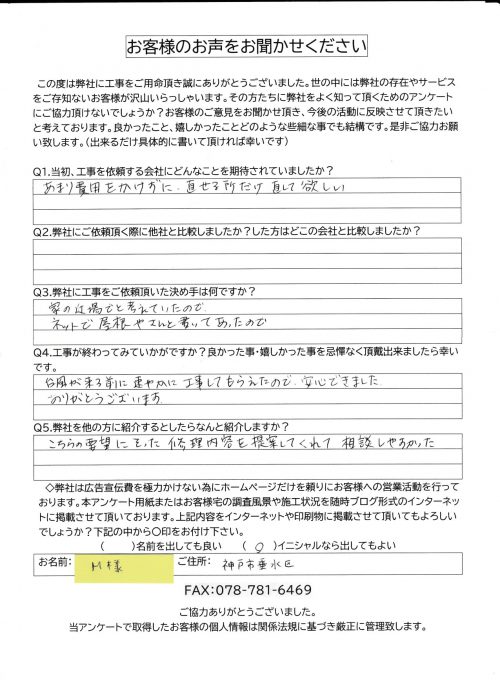 お客様のお声をお聞かせください
この度は弊社に工事をご用命頂き誠にありがとうございました。世の中には弊社の存在やサービス
をご存知ないお客様が沢山いらっしゃいます。その方たちに弊社をよく知って頂くためのアンケート
にご協力頂けないでしょうか？お客様のご意見をお聞かせ頂き、今後の活動に反映させて頂きたい
と考えております。良かったこと、嬉しかったことどのような些細な事でも結構です。是非ご協力お願
い致します。（出来るだけ具体的に書いて頂ければ幸いです）
Q1.当初、工事を依頼する会社にどんなことを期待されていましたか？
あまり費用をかけずに、直せる所だけ直して欲しい
Q2.弊社にご依頼頂く際に他社と比較しましたか？した方はどこの会社と比較しましたか？
Q3.弊社に工事をご依頼頂いた決め手は何ですか？
家の近場でと考えていたので、
ネットで屋根やさんと書いてあったので
Q4.工事が終わってみていかがですか？良かった事・嬉しかった事を忌憚なく頂戴出来ましたら幸い
です。
台風が来る前に速やかに工事してもらえたので、安心できました
ありがとうございます。
Q5.弊社を他の方に紹介するとしたらなんと紹介しますか？
こちらの要望にそった修理内容を提案してくれて相談しやすかった
◇弊社は広告宣伝費を極力かけない為にホームページだけを頼りにお客様への営業活動を行って
おります。本アンケート用紙またはお客様宅の調査風景や施工状況を随時ブログ形式のインターネッ
トに掲載させて頂いております。上記内容をインターネットや印刷物に掲載させて頂いてもよろしい
でしょうか？下記の中から○印をお付け下さい。
（　　）名前を出しても良い　（ ○ ）イニシャルなら出してもよい
お名前： M様 ご住所： 神戸市垂水区
FAX:078-781-6469
ご協力ありがとうございました。
当アンケートで取得したお客様の個人情報は関係法規に基づき厳正に管理致します。